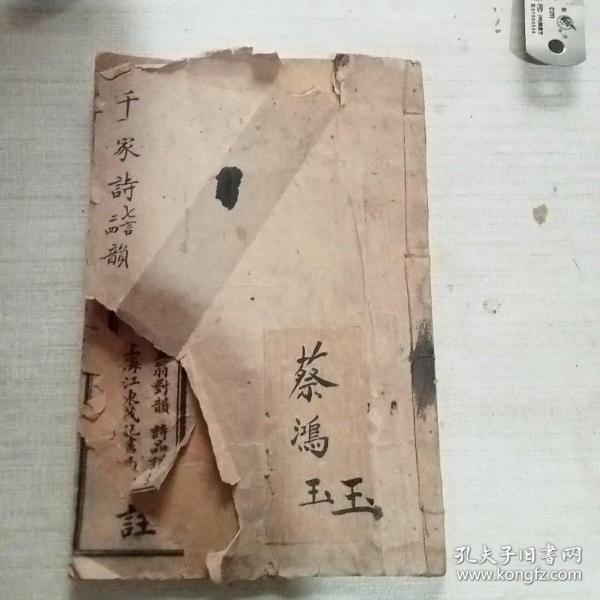 千家詩 七言
二四韻
翁對韻 詩品
上海江東茂記書局
註
蔡鴻玉
玉
cm
孔夫子旧书网
www.kongfz.com